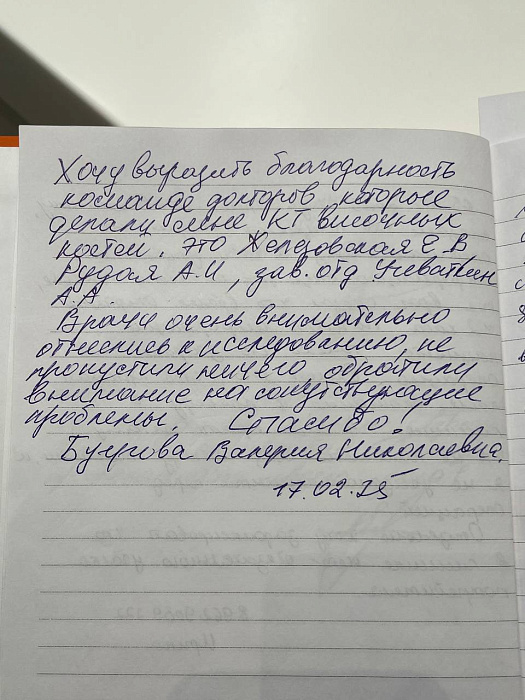 Хочу выразить благодарность
команде докторов, которые
делали мне КТ височных
костей. Это Е.В
Рудая А.И, зав. отд
А.А.
Врачи очень внимательно
отнеслись к исследованию, не
пропустили ничего обратили
внимание на сопутствующие
проблемы. Спасибо!
Валерия Николаевна.
17.02.25